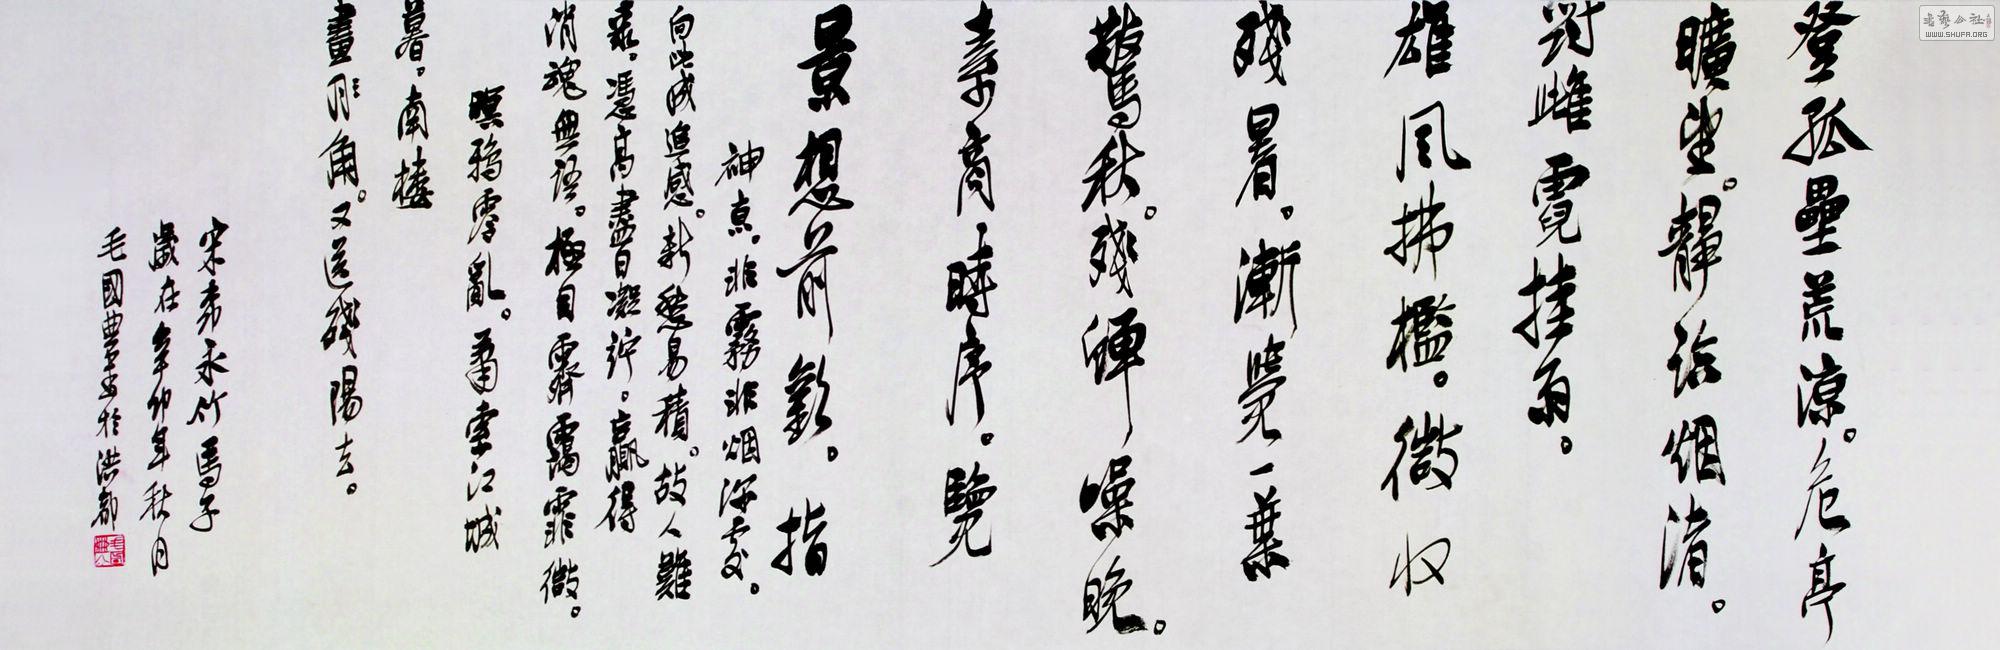 登孤壘荒涼。危亭
曠望。靜臨烟渚。
對雌霓挂雨。
雄風拂檻。微収
殘暑。漸覺一葉
驚秋。殘蟬噪晚。
素商時序。覽
景想前歡。指
神京。非霧非烟深處。
向此成追感。新愁易積。故人難
聚。憑高盡日凝竚。贏得
消魂無語。極目霽靄霏微。
暝鴉零亂。蕭索江城
暮。南樓
畫角。又送殘陽去。
宋柳永竹馬子
歲在辛卯年秋月
毛國典書於洪都
书艺公社
WWW.SHUFA.ORG